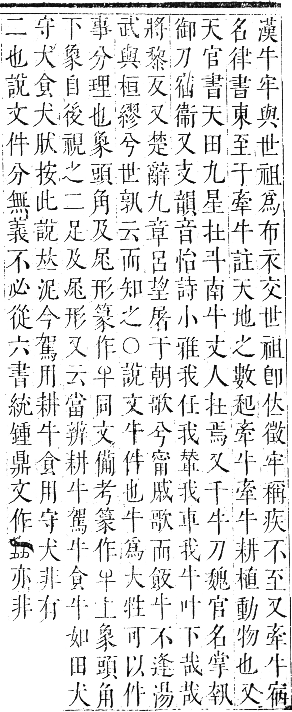 漢牛牢與世祖爲布衣交世祖卽位徵牢稱疾不至又牽牛宿
名律書東至于牽牛註天地之數起牽牛牽牛耕植動物也又
天官書天田九星在斗南牛丈人在焉又千牛刀魏官名掌執
御刀宿衞又支韻音怡詩小雅我任我輦我車我牛叶下哉哉
將黎反又楚辭九章呂望屠于朝歌兮甯戚歌而飯牛不逢湯
武與桓繆兮世孰云而知之○說文牛件也牛爲大牲可以件
事分理也象頭角及尾形篆作𐌙同文備考篆作𐌙上象頭角
下象自後視之二足及尾形又云當辨耕牛駕牛食牛如田犬
守犬食犬狀按此說太泥今駕用耕牛食用守犬非有
二也說文件分無義不必從六書統鍾鼎文作亦非